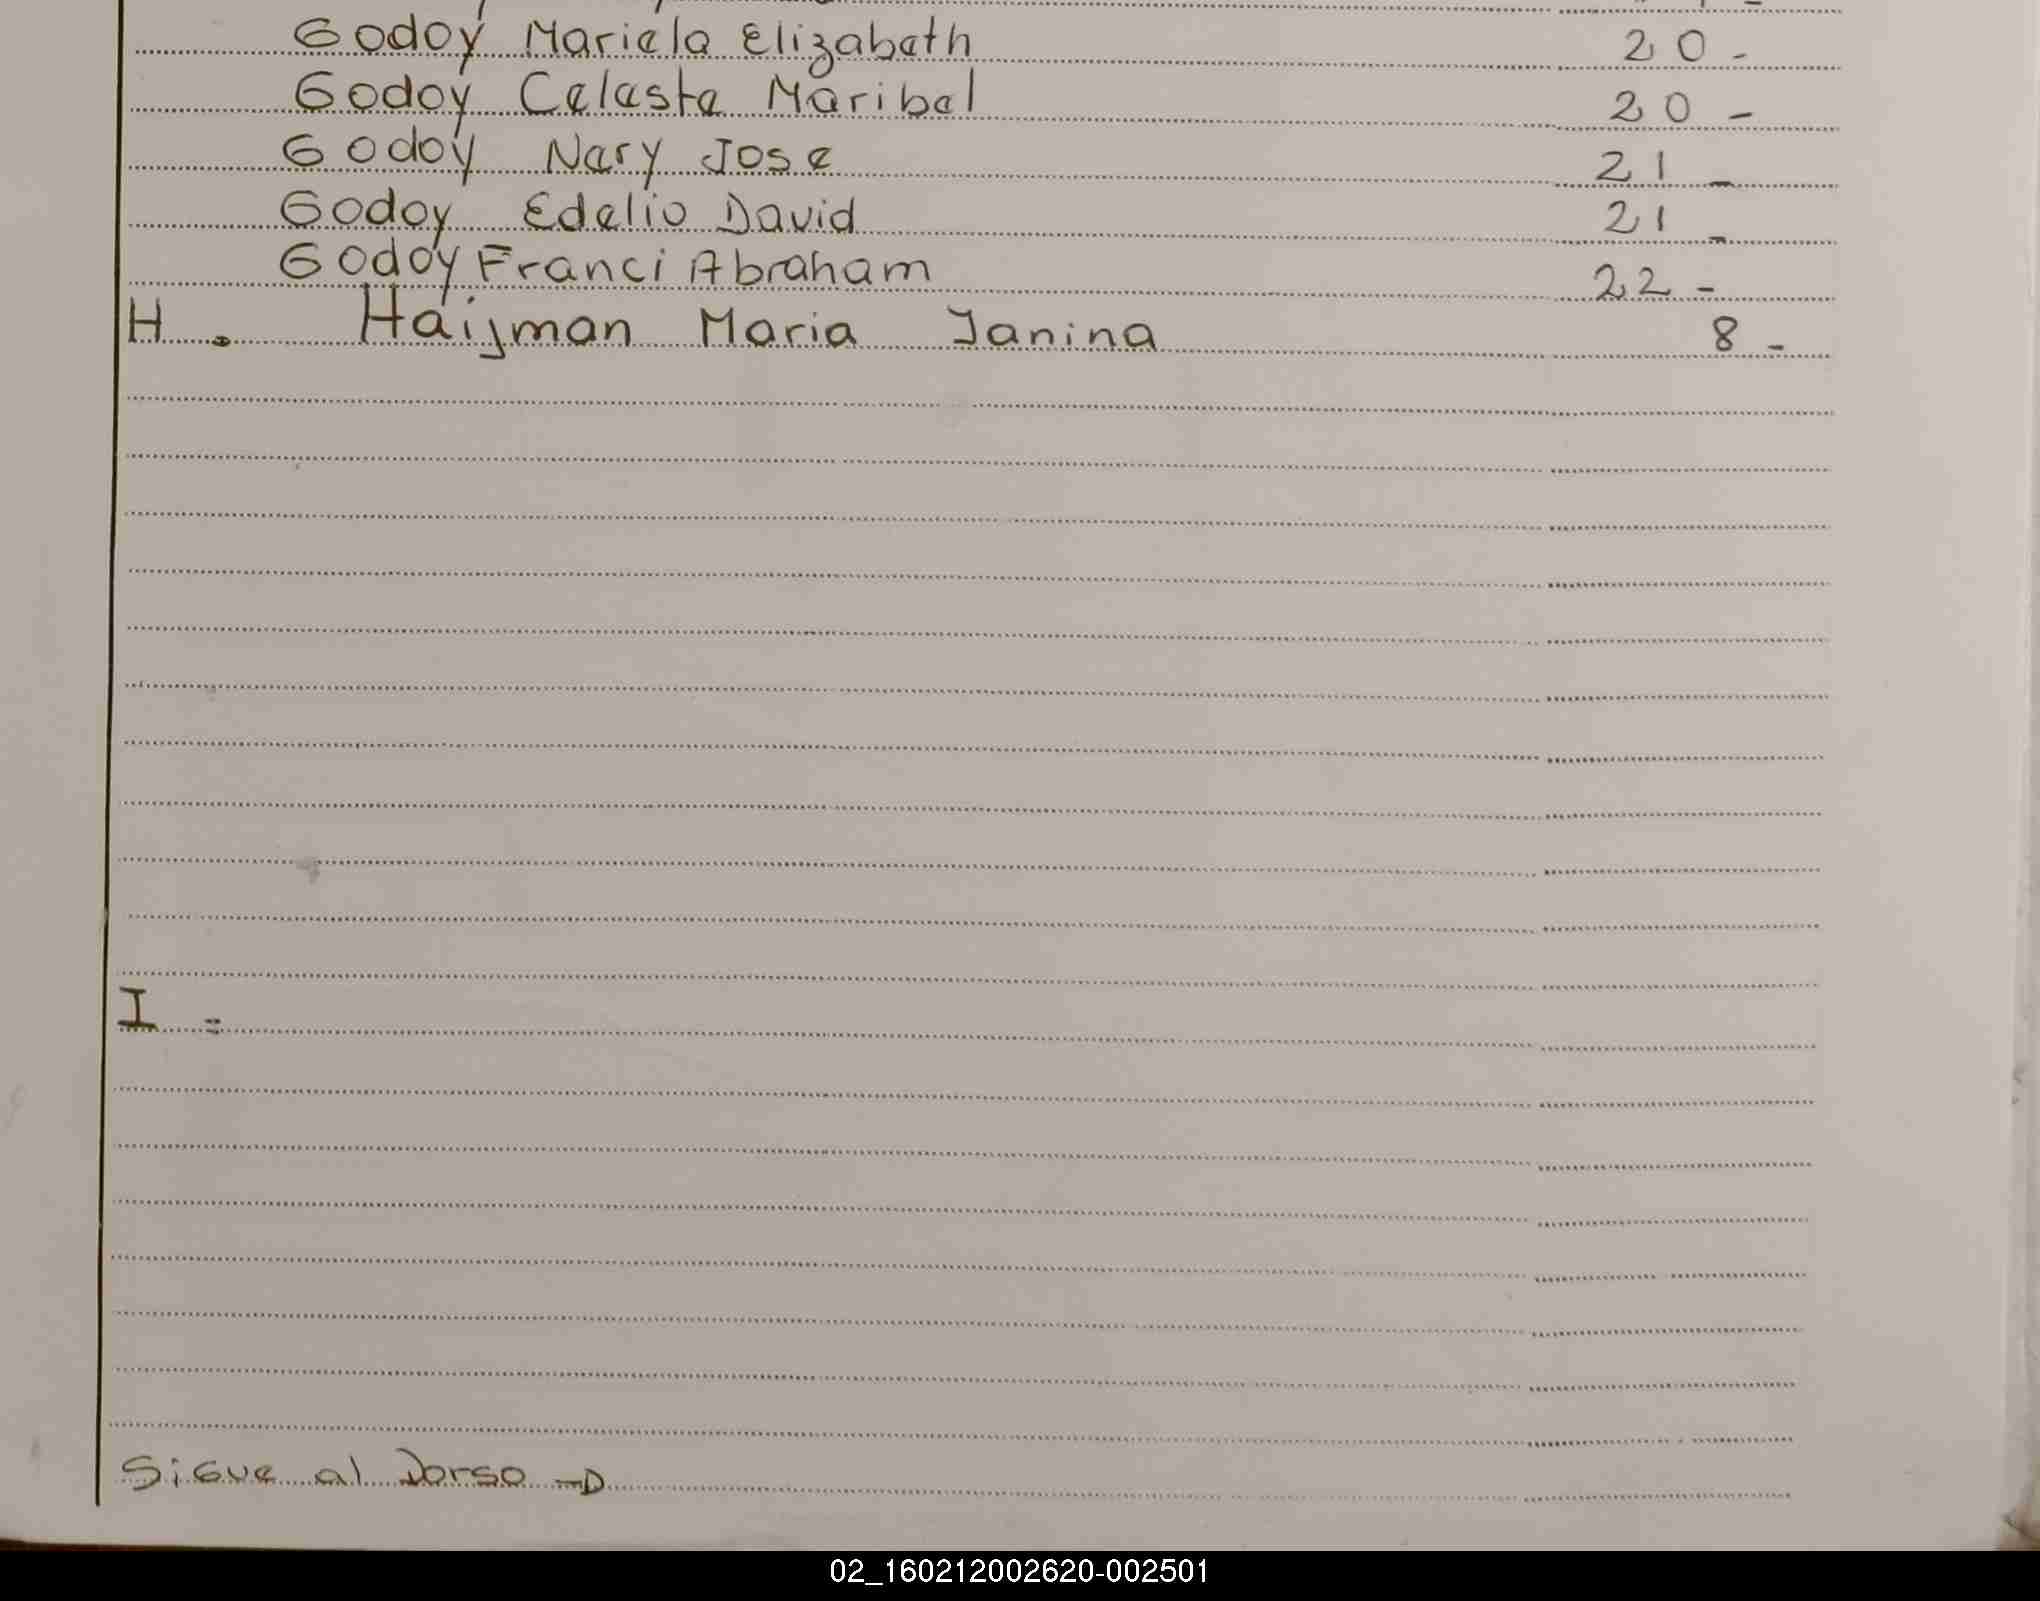 Godoy Mariela Elizabeth 20 -
Godoy Celeste Maribel 20 -
Godoy Nery Jose 21 -
Godoy Edelio David 21 -
Godoy Franci Abraham 22 -
H. Haijman Maria Yanina 8 -
I -
Sigue al Dorso →
02_160212002620-002501